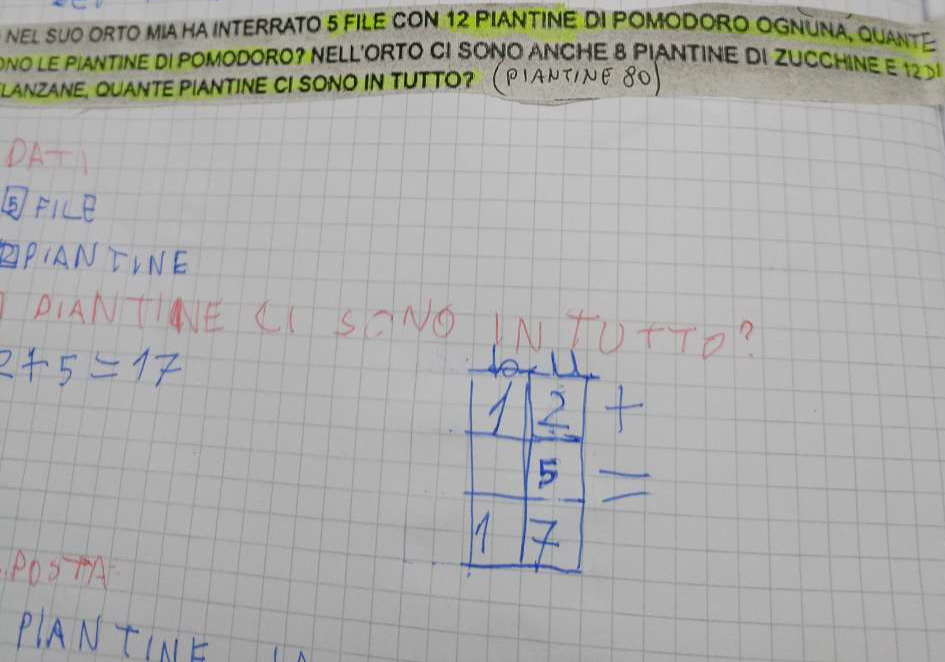 NEL SUO ORTO MIA HA INTERRATO 5 FILE CON 12 PIANTINE DI POMODORO OGNUNA, QUANTE
ONO LE PIANTINE DI POMODORO? NELL'ORTO CI SONO ANCHE 8 PIANTINE DI ZUCCHINE E 12 DI
LANZANE, QUANTE PIANTINE CI SONO IN TUTTO? (PIANTINE 80)
DATI
5 FILE
2 PIANTINE
PIANTINE CI SONO IN TUTTO?
2+5=17
da U
1 2 +
5 =
1 7
POSTA
PIANTINE